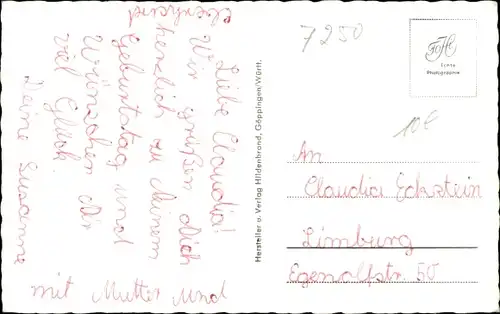 Liebe Claudia!
Wir grüßen dich
herzlich zu deinem
Geburtstag und
Wünschen dir
viel Glück.
Deine Susanne
mit Mutter und
7250
Echte
Photographie
10€
An
Claudia Eckstein
Limburg
Egenolfstr. 50
Hersteller u. Verlag Hildenbrand, Göppingen/Württ.